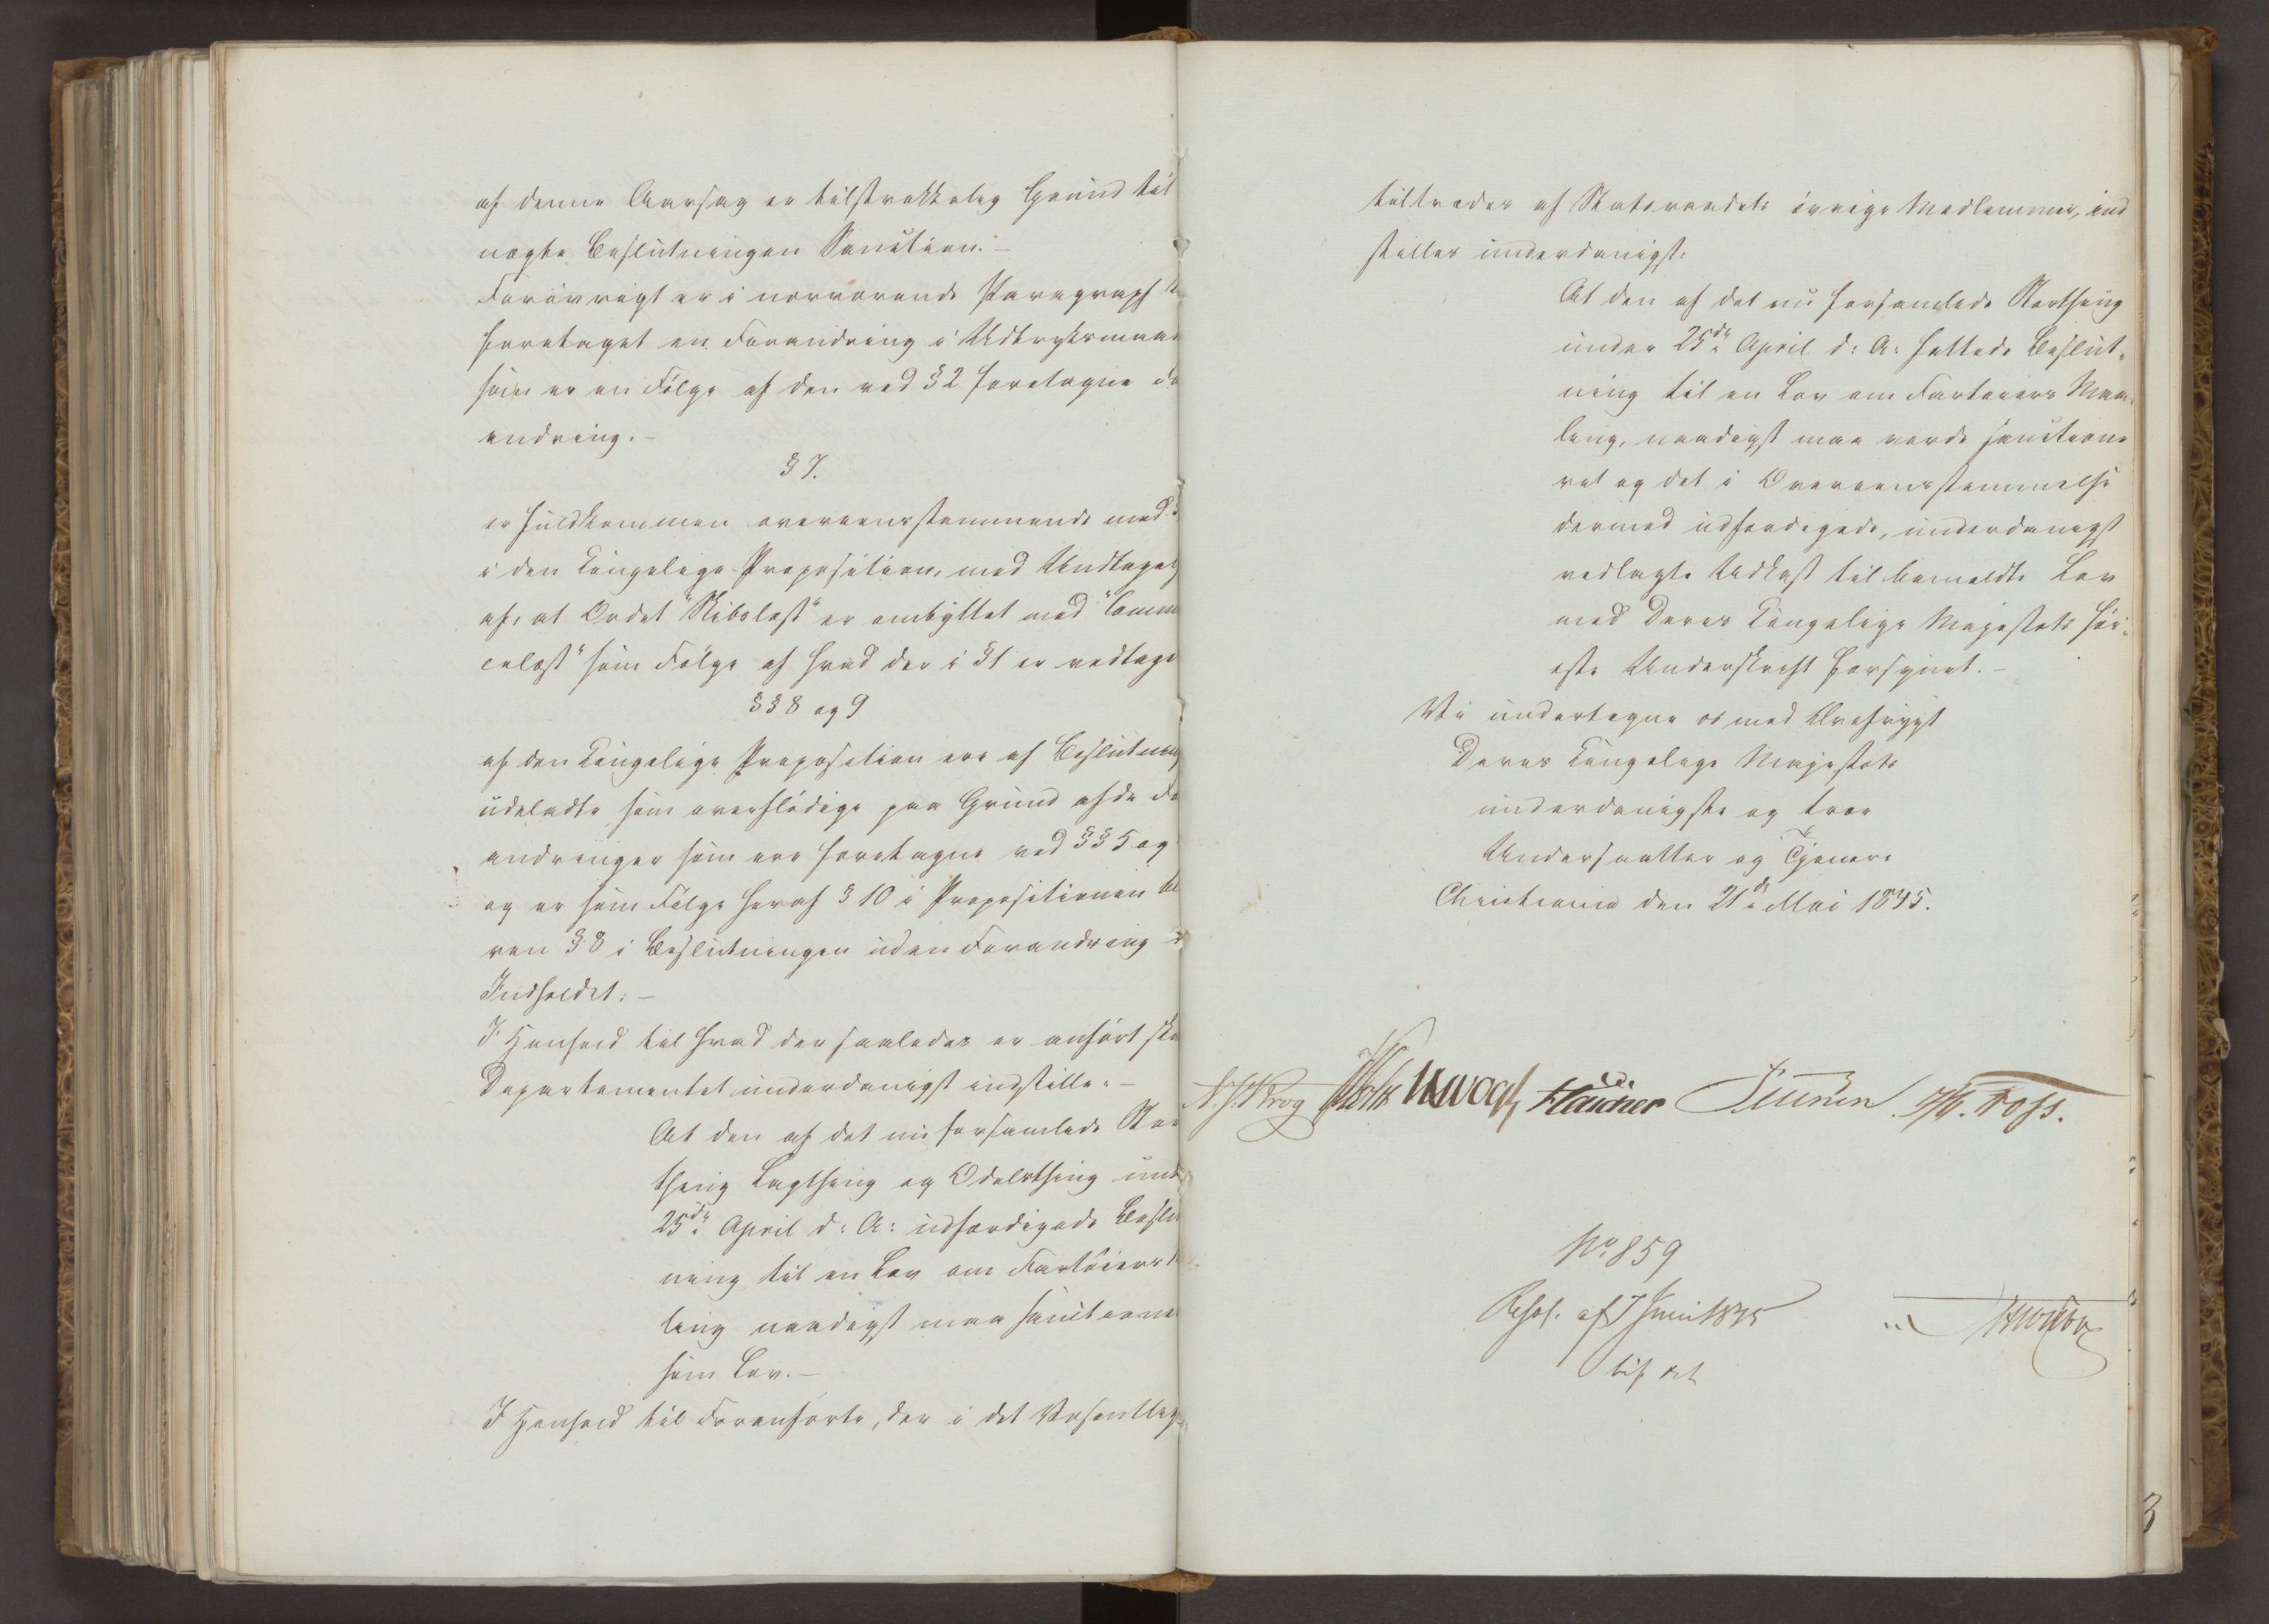 af denne Aarsag er tilstrækkelig Grund til
nægte Beslutningen Sanction.—
Forøvrigt er i nærværende Paragraph
foretaget en Forandring i Udtryksmaad
som er en Følge af den ved § 2 foretagne Fo
andring.—
§ 7.
er fuldkommen overeensstemmende med
i den Kongelige Proposition, med Undtagels
af, at Ordet "Skibslæst" er ombyttet med "Comm
celæst" som Følge af hvad der i § 1 er vedtage
§§ 8 og 9
af den Kongelige Proposition ere af Beslutning
udeladte som overflødige paa Grund af de Fo
andringer som ere foretagne ved §§ 5 og
og er som Følge heraf § 10 i Propositionen bl
ven § 8 i Beslutningen uden Forandring i
Indholdet.—
I Henhold til hvad der saaledes er anført ska
Departementet underdanigst indstille:—
At den af det nu forsamlede Stor
thing Lagthing og Odelsthing unde
25de April d: A: udfærdigede Beslu
ning til en Lov om Fartøiers
ling naadigst maa sanctione
som Lov.—
I Henhold til Foranførte, der i det Væsentlige
tiltrædes af Statsraadets øvrige Medlemmer, ind
stilles underdanigst:
At den af det nu forsamlede Storthing
under 25de April d: A: fattede Beslut-
ning til en Lov om Fartøiers Maa-
ling, naadigst maa vorde sanctione
ret og det i Overeensstemmelse
dermed udfærdigede, underdanigst
vedlagte Udkast til bemeldte Lov
med Deres Kongelige Majestæts høi-
este Underskrift forsynet.—
Vi undertegne os med Ærefrygt
Deres Kongelige Majestæts
underdanigste og troe
Undersaatter og Tjenere
Christiania den 21de Mai 1845.
N. J. Krog Holst Vogt Hauner H. Foss.
No. 859
Resol. af 7 Juni 1845
bif.